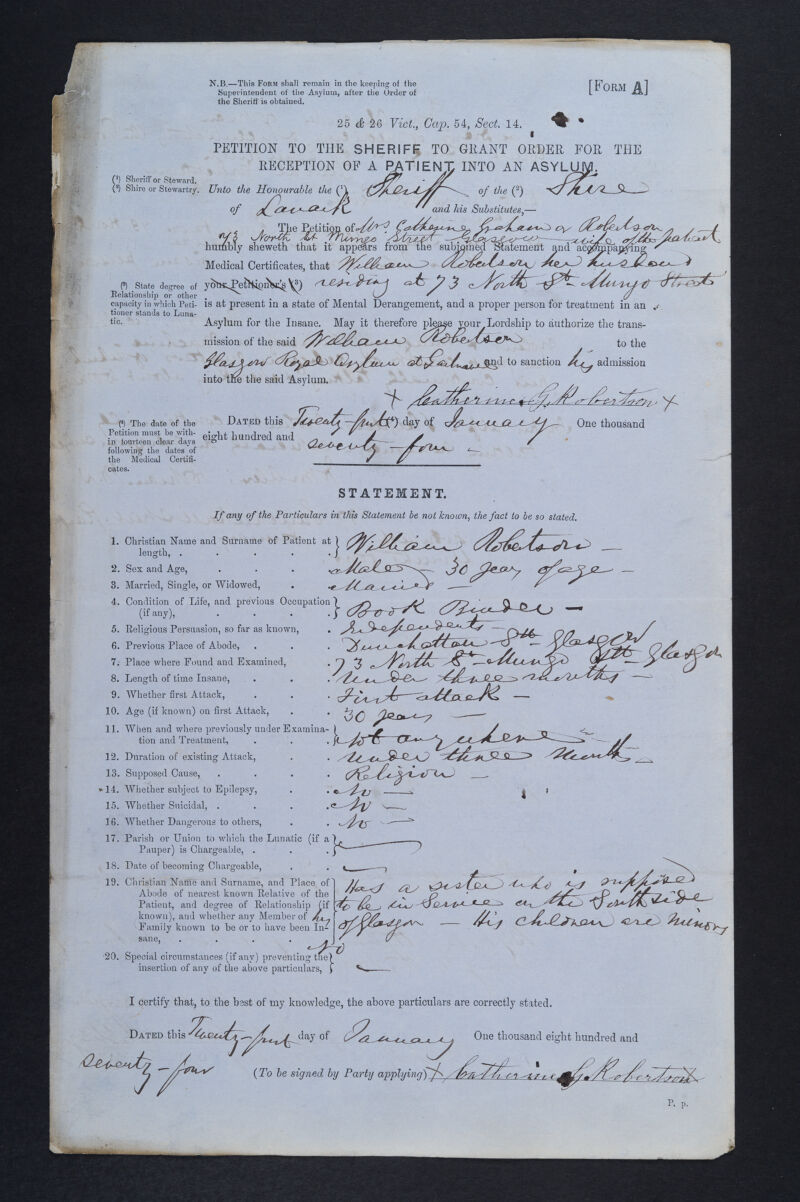 N.B.—This Form shall remain in the keeping of the
Superintendent of the Asylum, after the Order of
the Sheriff is obtained.
[Form A]
25 & 26 Vict., Cap. 54, Sect. 14.
PETITION TO THE SHERIFF TO GRANT ORDER FOR THE
RECEPTION OF A PATIENT INTO AN ASYLUM.
(¹) Sheriff or Steward.
(²) Shire or Stewartry.
Unto the Honourable the (¹) Sheriff of the (²) Shire
of Lanark and his Substitutes,—
The Petition of Mrs. Catherine Graham or Robertson
of 73 North St Mungo Street Glasgow wife of the patient
humbly sheweth that it appears from the subjoined Statement and accompanying
Medical Certificates, that William Robertson her husband
(³) State degree of
Relationship or other
capacity in which Peti-
tioner stands to Luna-
tic.
your Petitioner's (³) residing at 73 North St Mungo Street
is at present in a state of Mental Derangement, and a proper person for treatment in an
Asylum for the Insane. May it therefore please your Lordship to authorize the trans-
mission of the said William Robertson to the
Glasgow Royal Asylum at Gartnavel and to sanction his admission
into the the said Asylum.
x Catherine G. Robertson x
(⁴) The date of the
Petition must be with-
in fourteen clear days
following the dates of
the Medical Certifi-
cates.
Dated this Twenty-first (⁴) day of January One thousand
eight hundred and seventy-four
STATEMENT.
If any of the Particulars in this Statement be not known, the fact to be so stated.
1. Christian Name and Surname of Patient at
length, . . . . . William Robertson —
2. Sex and Age, . . . Male — 30 years of age —
3. Married, Single, or Widowed, . Married —
4. Condition of Life, and previous Occupation
(if any), . . . . Book Binder —
5. Religious Persuasion, so far as known, . Independents —
6. Previous Place of Abode, . . . Dunchattan St Glasgow
7. Place where Found and Examined, . 73 North St Mungo St Glasgow
8. Length of time Insane, . . . Under three months —
9. Whether first Attack, . . . First attack —
10. Age (if known) on first Attack, . . 30 years —
11. When and where previously under Examina-
tion and Treatment, . . . Not anywhere —
12. Duration of existing Attack, . . Under three months —
13. Supposed Cause, . . . . Religion —
14. Whether subject to Epilepsy, . . No —
15. Whether Suicidal, . . . . No —
16. Whether Dangerous to others, . . No —
17. Parish or Union to which the Lunatic (if a
Pauper) is Chargeable, . . . —
18. Date of becoming Chargeable, . . —
19. Christian Name and Surname, and Place of
Abode of nearest known Relative of the
Patient, and degree of Relationship (if
known), and whether any Member of his
Family known to be or to have been In-
sane, . . . . . No
Has a sister who is supposed
to be in Service on the South side
of Glasgow — His children are minors
20. Special circumstances (if any) preventing the
insertion of any of the above particulars, —
I certify that, to the best of my knowledge, the above particulars are correctly stated.
Dated this Twenty-first day of January One thousand eight hundred and
seventy-four (To be signed by Party applying) x Catherine G. Robertson
P. p.